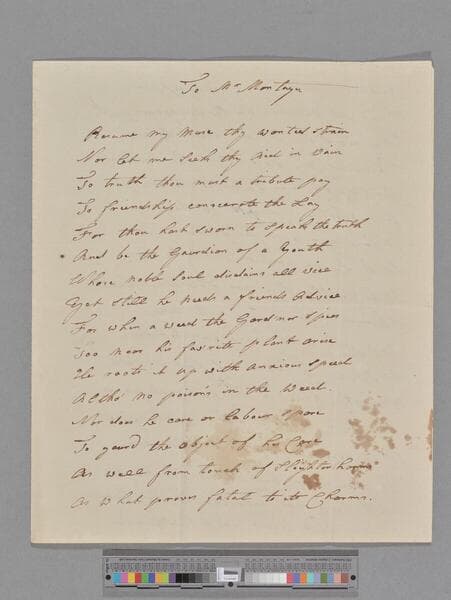 To Mr Montagu
Resume my Muse thy wonted strain
Nor let me seek thy Aid in vain
To truth thou must a tribute pay
To friendship consecrate the Lay
For thou hast sworn to speak the truth
And be the Gaurdian of a Youth
Whose noble Soul disdains all vice
Yet still he needs a friends Advice
For when a weed the Gardnor spies
Too near his favrite plant arise
He roots it up with anxious speed
Altho' no poison's in the Weed.
Nor does he care or labour spare
To guard the object of his Care
As well from touch of slighter harm
As what proves fatal to its Charms.